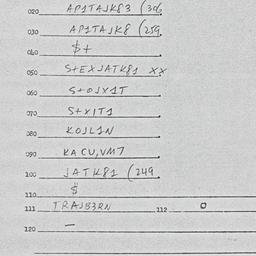 020 AP1TAJK83 (306
030 AP1TAJK8 (259
040 $+
050 S+EXJATK81 XX
060 S+OJX1T
070 S+XIT1
080 KOJL1N
090 KACU,VM7
100 JATK81 (249
110 $
111 TRAJB3RN 112 O
120 —